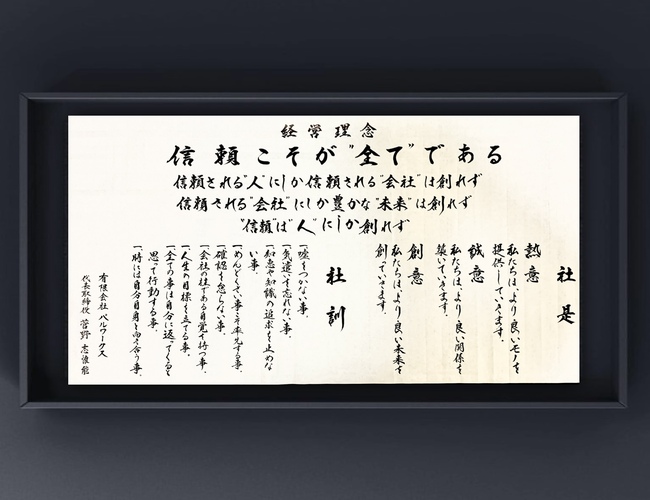 経営理念
信頼こそが"全て"である
信頼される"人"にしか信頼される"会社"は創れず
信頼される"会社"にしか豊かな"未来"は創れず
"信頼"は"人"にしか創れず
社是
熱意
私たちは、より良いモノを
提供していきます。
誠意
私たちは、より良い関係を
築いていきます。
創意
私たちは、より良い未来を
創っていきます。
社訓
一、嘘をつかない事、
一、気遣いを忘れない事、
一、知恵や知識の追求を止めな
い事
一、めんどくさい事を率先する事、
一、確認を怠らない事、
一、会社の柱である自覚を持つ事、
一、人生の目標を立てる事、
一、全ての事は自分に返ってくると
思って行動する事、
一、時には自分自身と向き合う事、
有限会社 ベルワークス
代表取締役 菅野